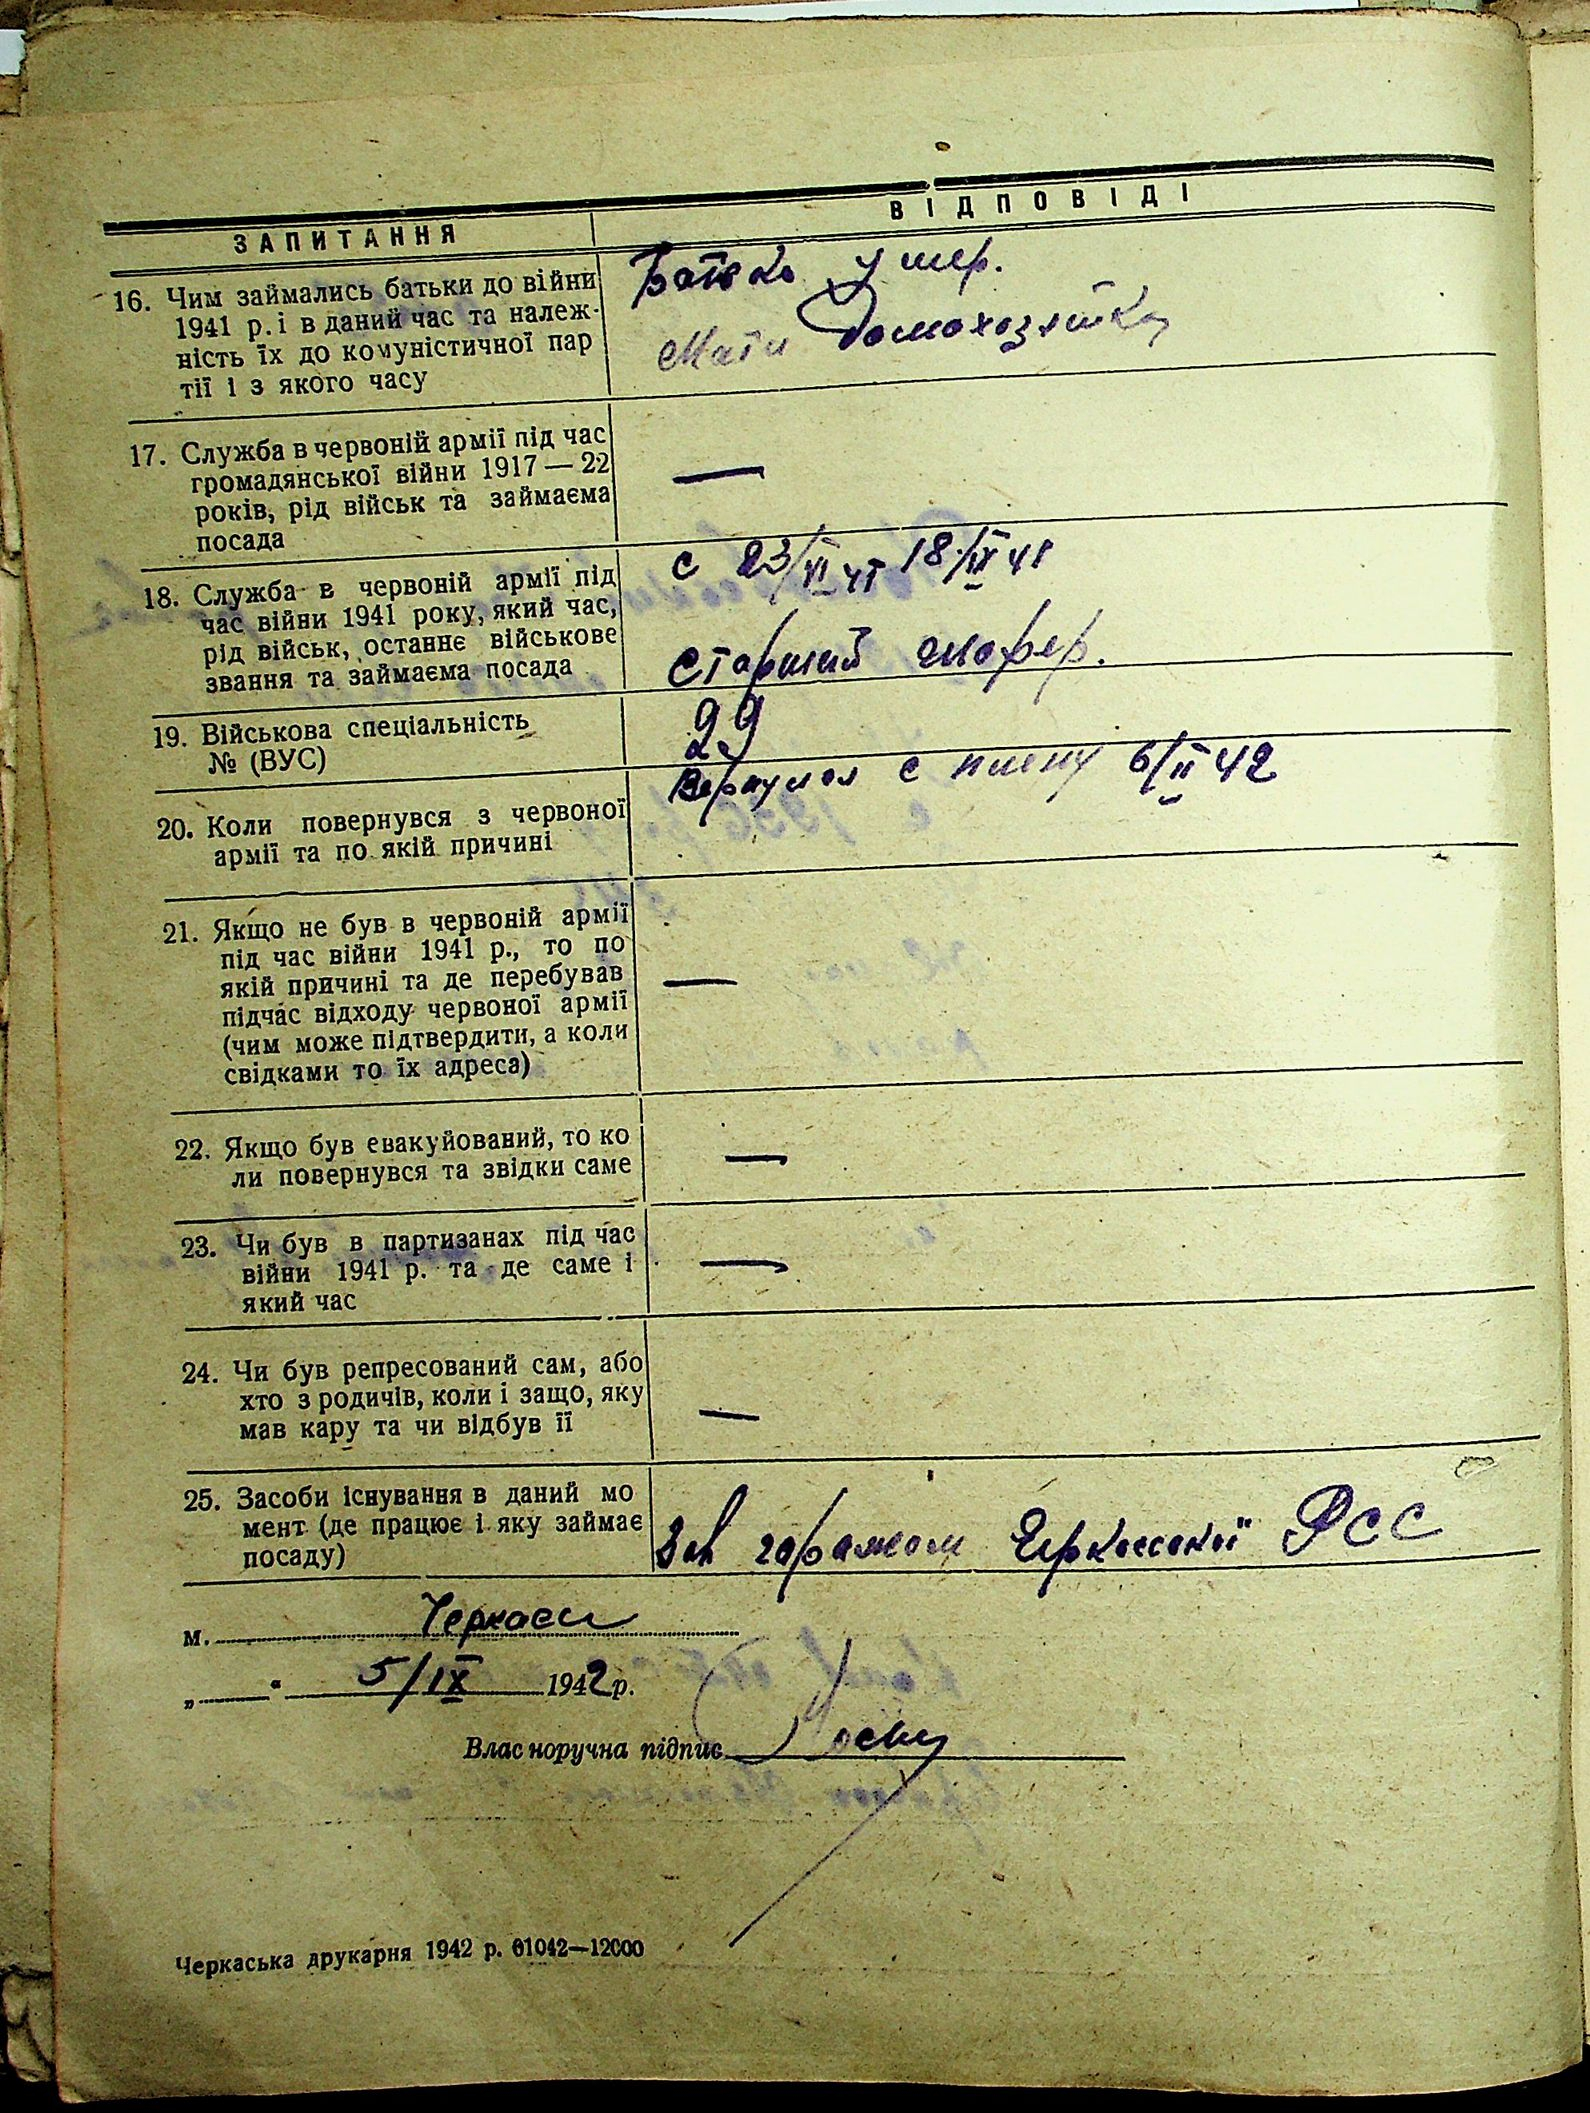 ЗАПИТАННЯ
ВІДПОВІДІ
16. Чим займались батьки до війни
1941 р. і в даний час та належ-
ність їх до комуністичної пар
тії і з якого часу
Батько умер.
Мати домохозяйка
17. Служба в червоній армії під час
громадянської війни 1917 — 22
років, рід військ та займаєма
посада
—
18. Служба в червоній армії під
час війни 1941 року, який час,
рід військ, останнє військове
звання та займаєма посада
с 23/VI 41 18/IX 41
Старший шофер.
19. Військова спеціальність
№ (ВУС)
29
20. Коли повернувся з червоної
армії та по якій причині
Вернулся с плену 6/II 42
21. Якщо не був в червоній армії
під час війни 1941 р., то по
якій причині та де перебував
підчас відходу червоної армії
(чим може підтвердити, а коли
свідками то їх адреса)
—
22. Якщо був евакуйований, то ко
ли повернувся та звідки саме
—
23. Чи був в партизанах під час
війни 1941 р. та де саме і
який час
—
24. Чи був репресований сам, або
хто з родичів, коли і защо, яку
мав кару та чи відбув її
—
25. Засоби існування в даний мо
мент (де працює і яку займає
посаду)
Зав гаражом Черкасской РСС
м. Черкаси
„ “ 5/IX 1942 р.
Власноручна підпис
Черкаська друкарня 1942 р. 01042—12000